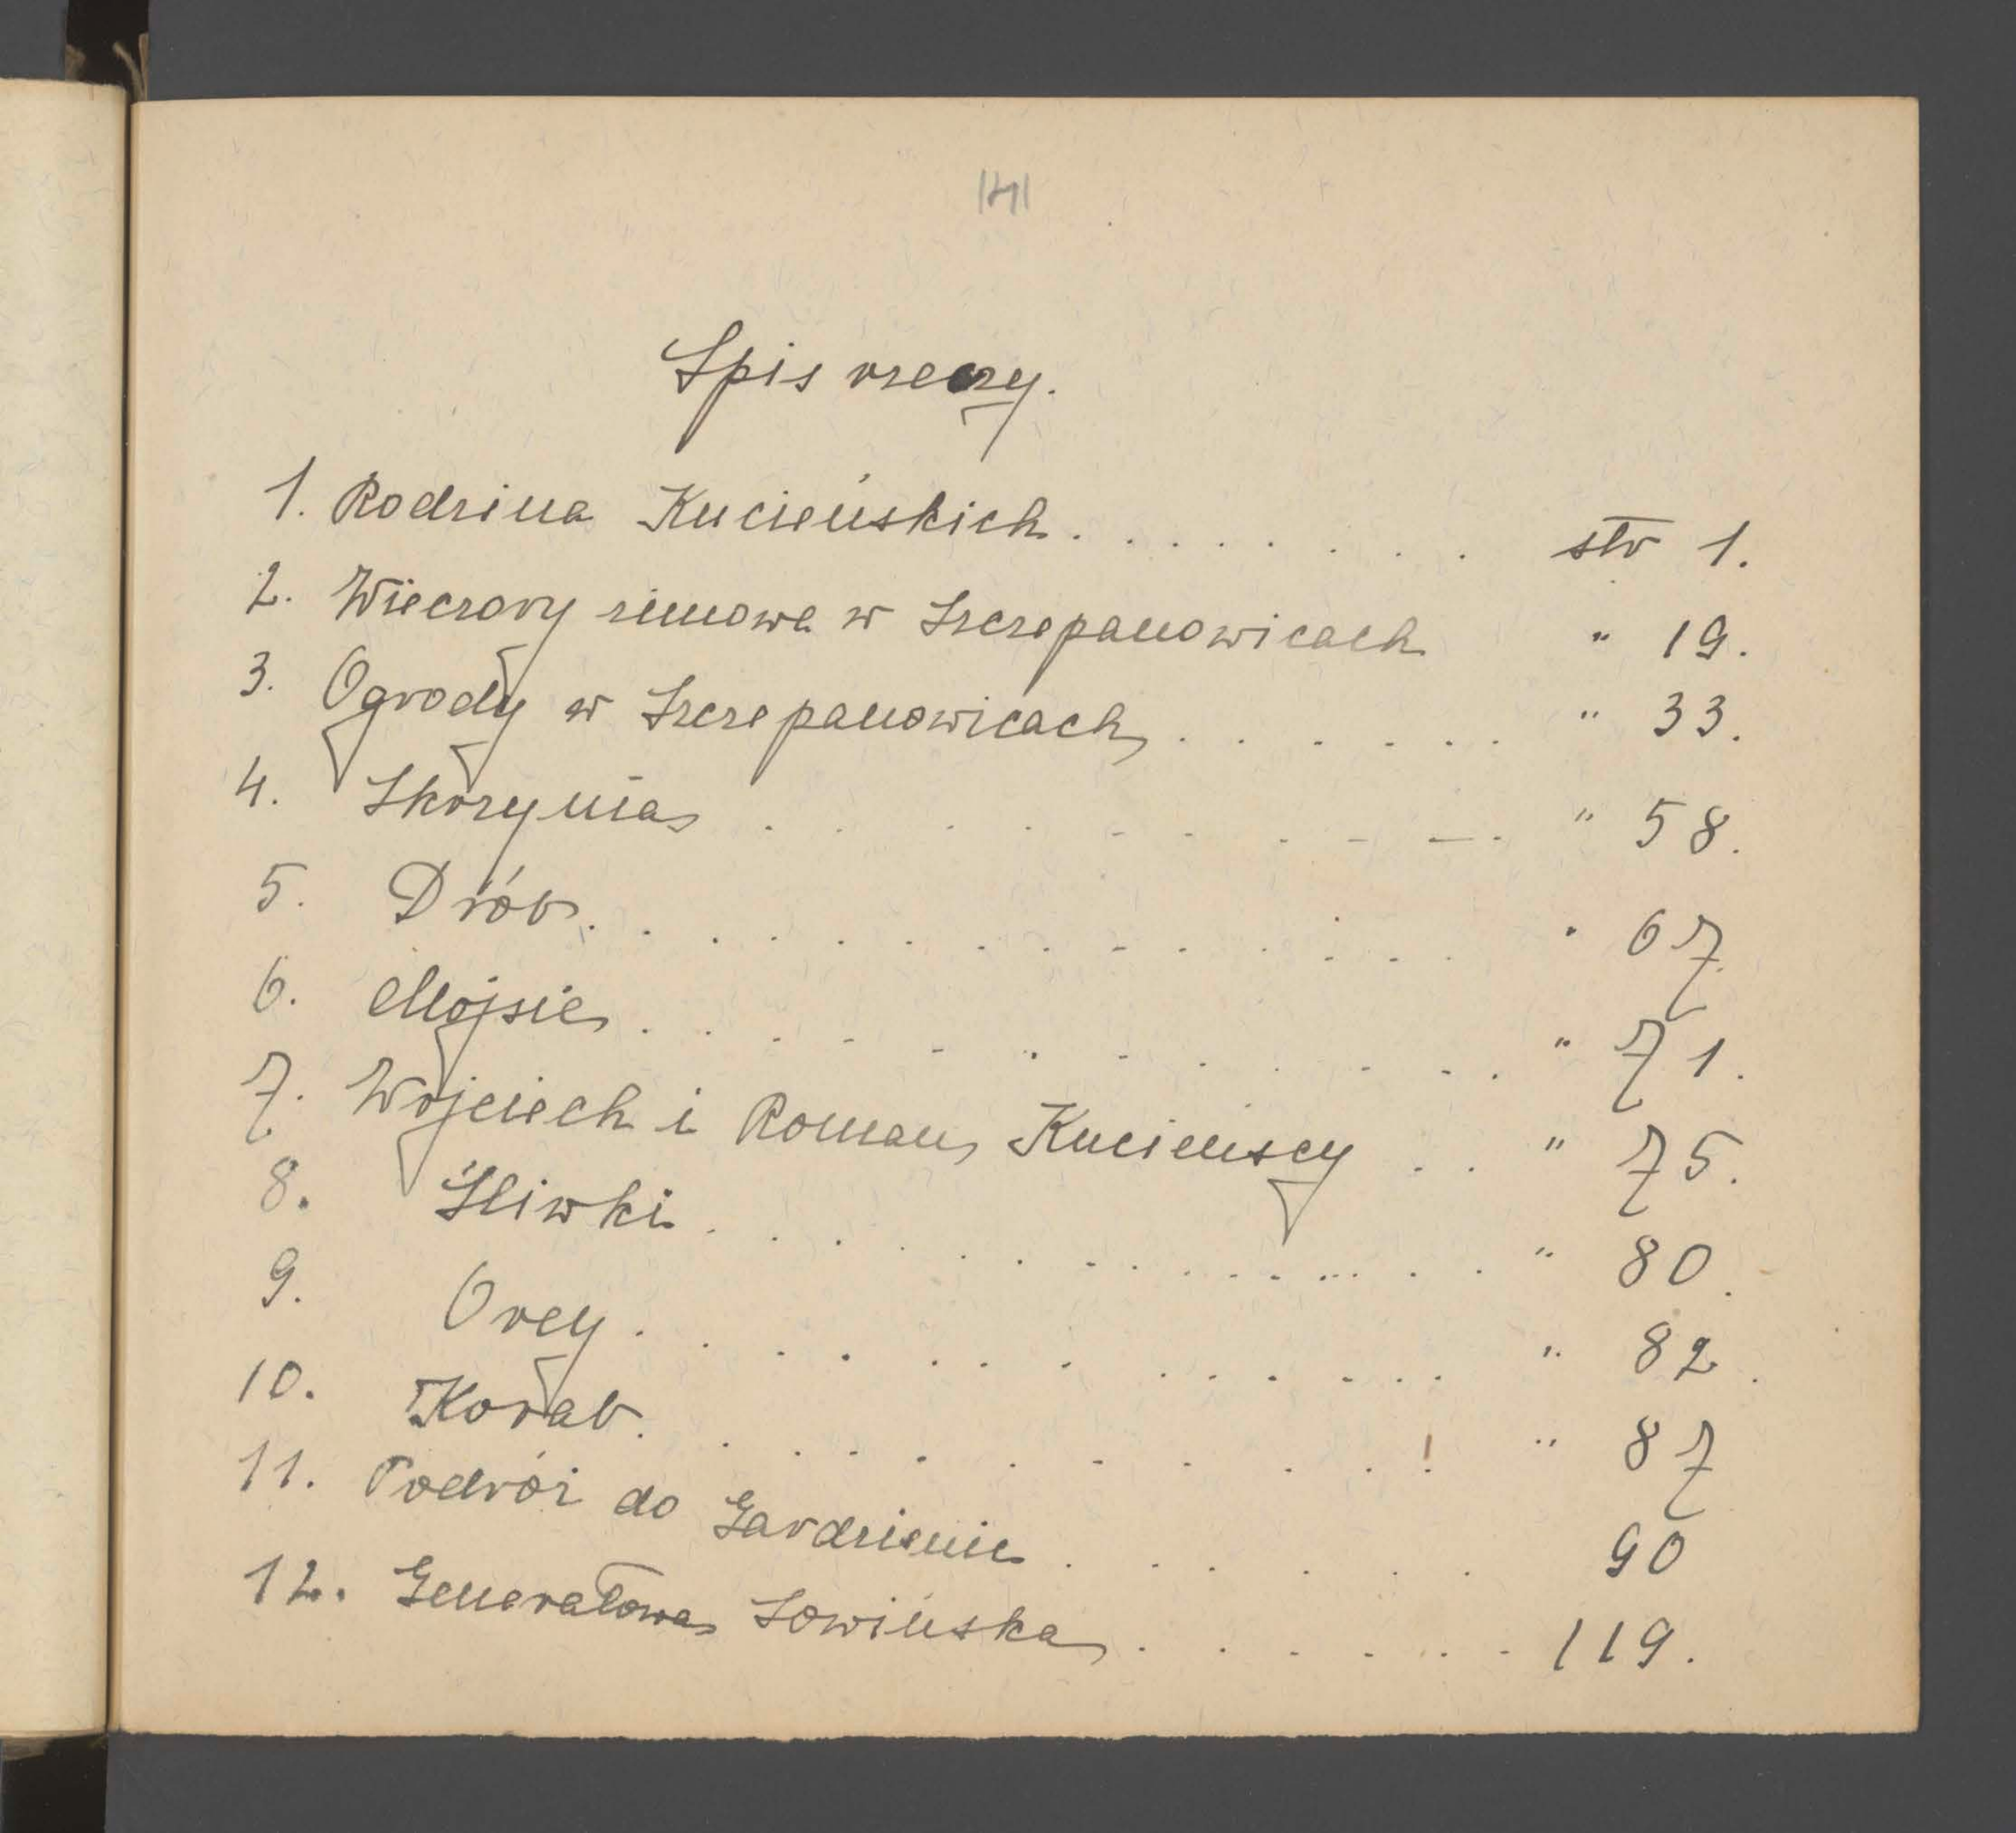 141
Spis rzeczy.
1. Rodzina Kucieńskich . . . . . . . . str 1.
2. Wieczory zimowe w Szczepanowicach " 19.
3. Ogrody w Szczepanowicach . . . . . . " 33.
4. Skrzynia . . . . . . . . . . " 58.
5. Drób . . . . . . . . . . . . . . " 67.
6. Mojsie . . . . . . . . . . . . " 71.
7. Wojciech i Roman Kucieńscy . . " 75.
8. Śliwki . . . . . . . . . . . . . . . " 80.
9. Orcy . . . . . . . . . . . . . " 82.
10. Korab . . . . . . . . . . . . " 87
11. Podróż do Gardzienic . . . . . . 90
12. Generałowa Sowińska . . . . . . . 119.